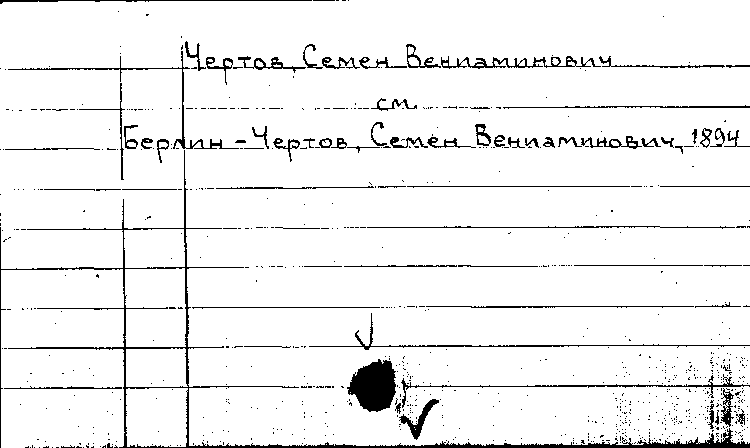 Чертов, Семен Вениаминович
см.
Берлин - Чертов, Семен Вениаминович, 1894